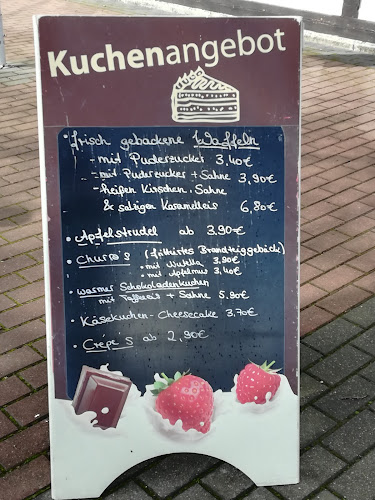 Kuchenangebot
• frisch gebackene Waffeln
- mit Puderzucker 3,40€
- mit Puderzucker + Sahne 3,90€
- heißen Kirschen, Sahne
& salziger Karamelleis 6,80€
• Apfelstrudel ab 3.90€
• Churro's (frittiertes Brandteiggebäck)
• mit Nutella 3,90€
• mit Apfelmus 3,40€
• warmer Schokoladenkuchen
mit + Sahne 5.90€
• Käsekuchen - Cheesecake 3,70€
• Crepe's ab 2,90€